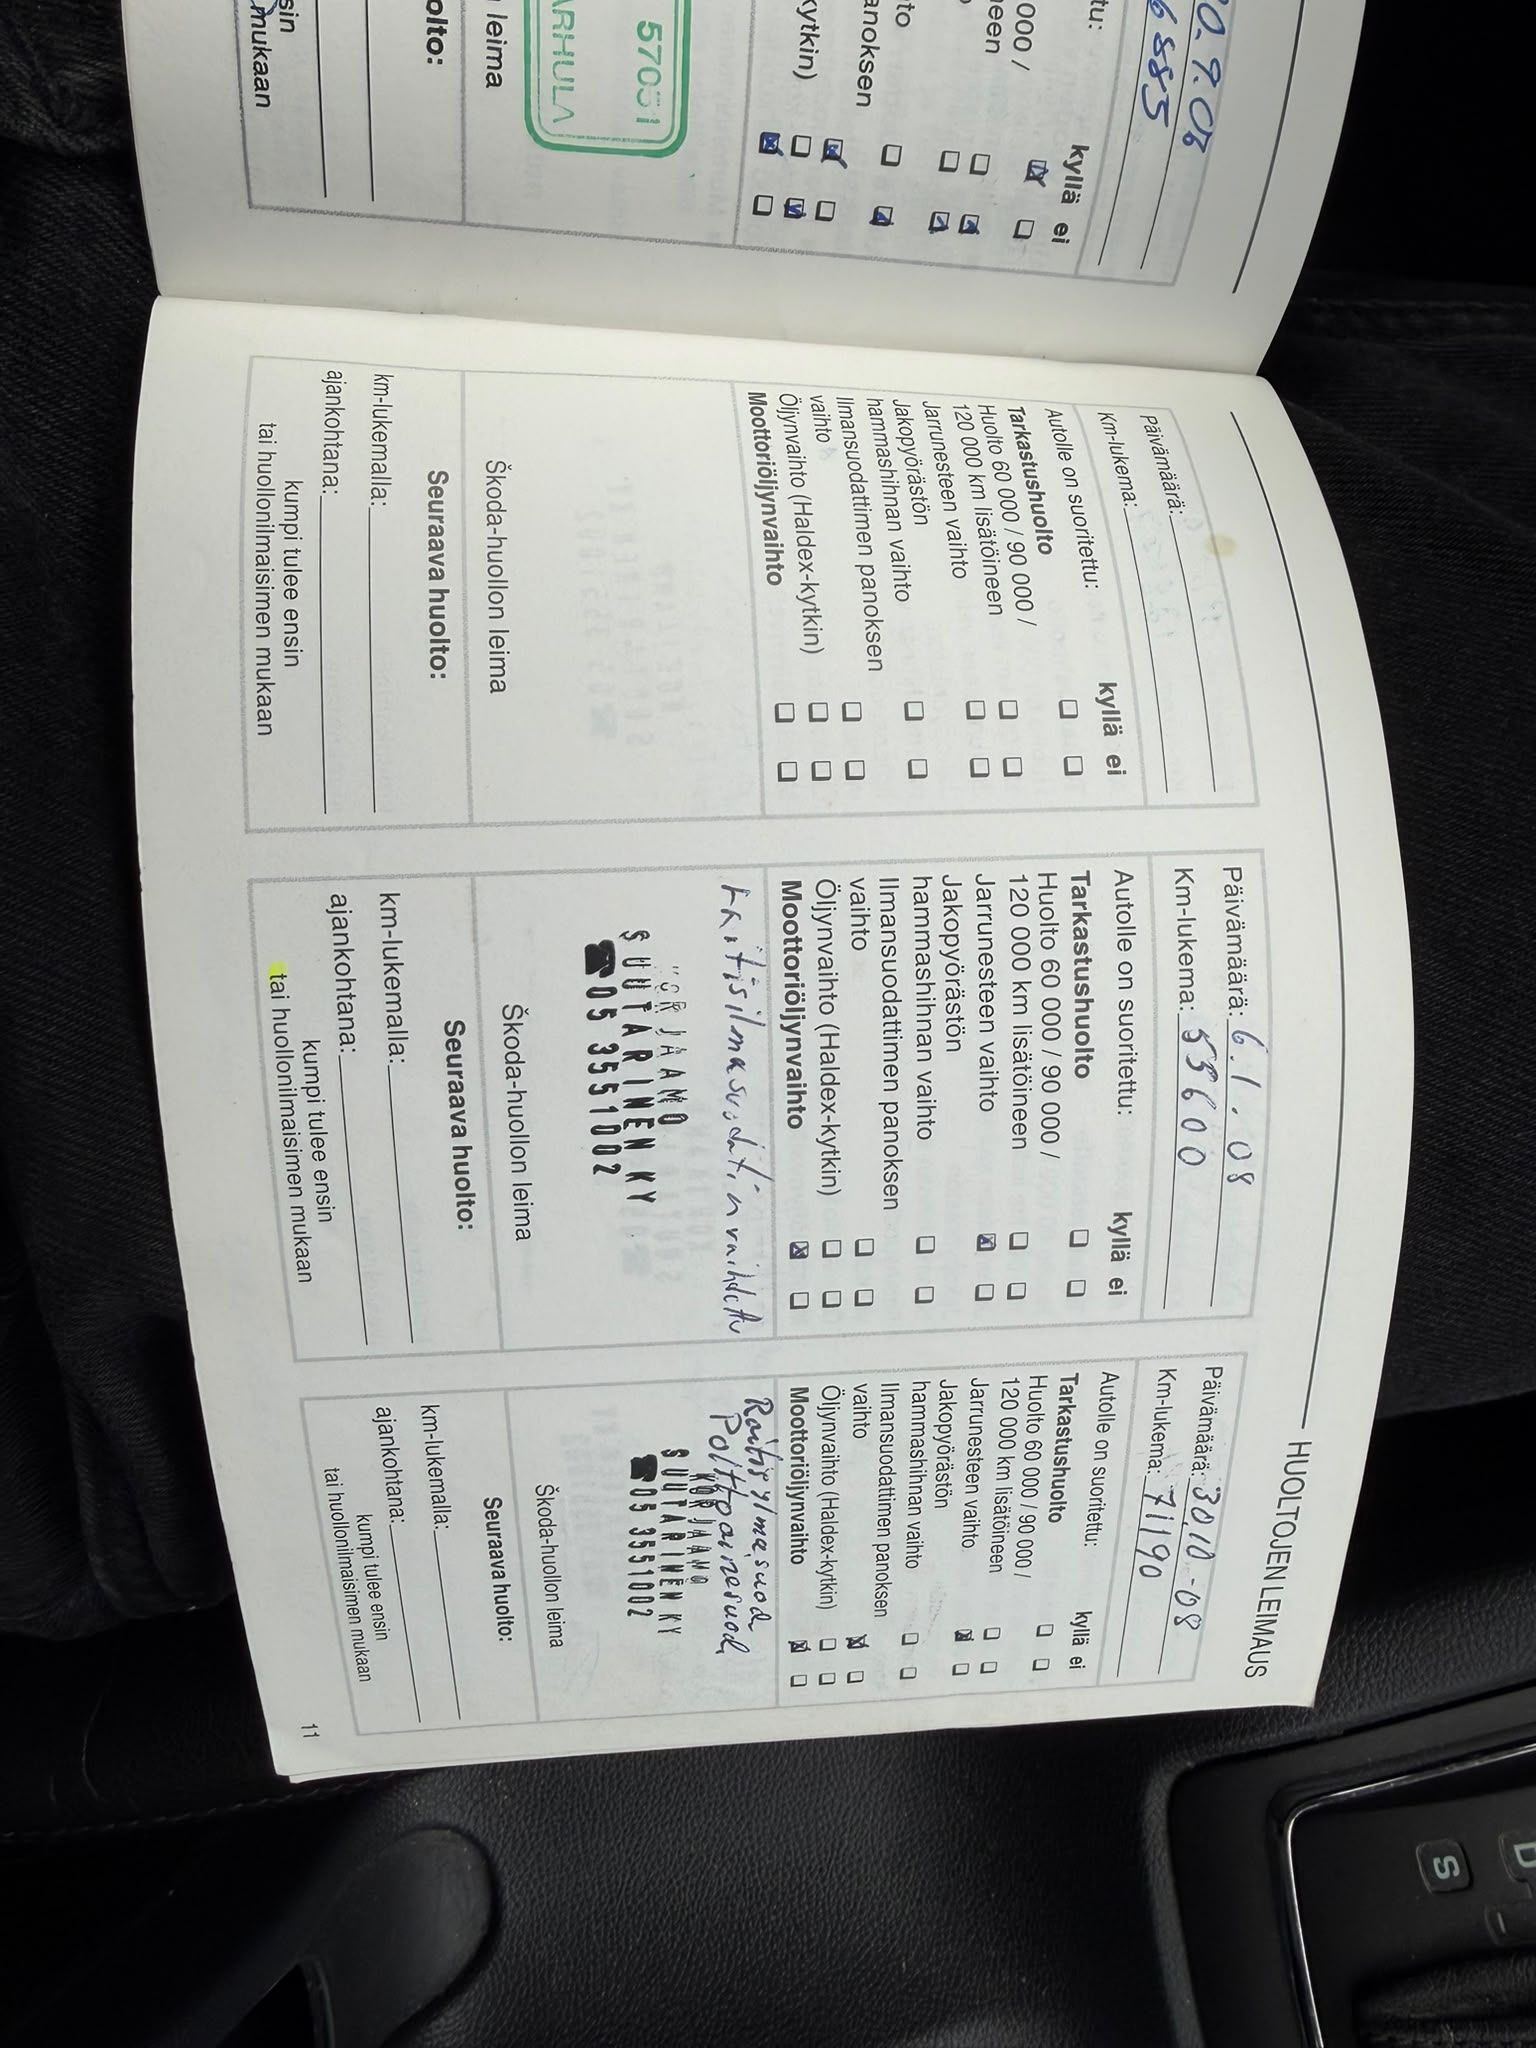 0.9.06
6885
tu:
kyllä ei
000 /
een
to
anoksen
kytkin)
57051
ARHULA
leima
olto:
sin
mukaan
HUOLTOJEN LEIMAUS
Päivämäärä:
Km-lukema:
Autolle on suoritettu:
kyllä ei
Tarkastushuolto
Huolto 60 000 / 90 000 /
120 000 km lisätöineen
Jarrunesteen vaihto
Jakopyörästön
hammashihnan vaihto
Ilmansuodattimen panoksen
vaihto
Öljynvaihto (Haldex-kytkin)
Moottoriöljynvaihto
Škoda-huollon leima
Seuraava huolto:
km-lukemalla:
ajankohtana:
kumpi tulee ensin
tai huollonilmaisimen mukaan
Päivämäärä: 6.1.08
Km-lukema: 53600
Autolle on suoritettu:
kyllä ei
Tarkastushuolto
Huolto 60 000 / 90 000 /
120 000 km lisätöineen
Jarrunesteen vaihto
Jakopyörästön
hammashihnan vaihto
Ilmansuodattimen panoksen
vaihto
Öljynvaihto (Haldex-kytkin)
Moottoriöljynvaihto
raitisilmasuodatin vaihdettu
KORJAAMO
SUUTARINEN KY
☎05 3551002
Škoda-huollon leima
Seuraava huolto:
km-lukemalla:
ajankohtana:
kumpi tulee ensin
tai huollonilmaisimen mukaan
Päivämäärä: 30.10-08
Km-lukema: 71190
Autolle on suoritettu:
kyllä ei
Tarkastushuolto
Huolto 60 000 / 90 000 /
120 000 km lisätöineen
Jarrunesteen vaihto
Jakopyörästön
hammashihnan vaihto
Ilmansuodattimen panoksen
vaihto
Öljynvaihto (Haldex-kytkin)
Moottoriöljynvaihto
Raitisylmasuod.
Polttoainesuod.
KORJAAMO
SUUTARINEN KY
☎05 3551002
Škoda-huollon leima
Seuraava huolto:
km-lukemalla:
ajankohtana:
kumpi tulee ensin
tai huollonilmaisimen mukaan
11
D
S